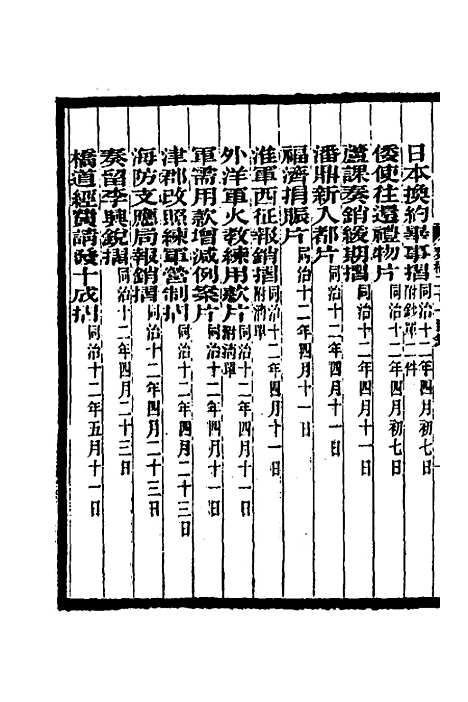 日本換約事竣摺同治十二年四月初七日附鈔單一件
倭使往還禮物片同治十二年四月初七日
蘆課奏銷緩期摺同治十二年四月十一日
潘鼎新入都片同治十二年四月十一日
福濟捐賑片同治十二年四月十一日
淮軍西征報銷摺同治十二年四月十一日附清單
外洋軍火教練用款片同治十二年四月十一日附清單
軍需用款增減例案片同治十二年四月十一日
津郡改照練軍營制摺同治十二年四月二十三日
海防支應局報銷摺同治十二年四月二十三日
奏留李興銳摺同治十二年四月二十三日
橋道經費請發十成摺同治十二年五月十一日